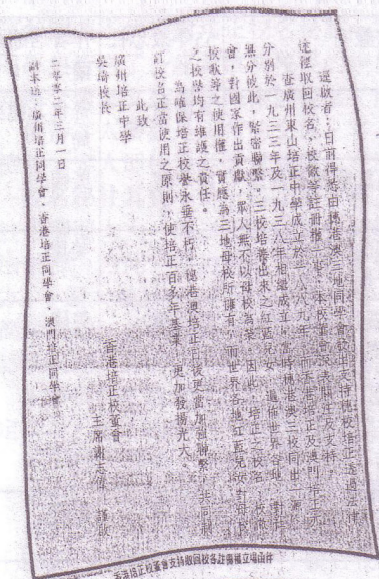 逕啟者：日前得悉由穗港澳三地同學會發出支持穗校培正透過法律
途徑取回校名、校徽等註冊權一事，本校董會深表關注及支持。
查廣州東山培正中學成立於一八八九年，而香港培正及澳門培正亦
分別於一九三三年及一九三八年相繼成立，當時穗港澳三校同出一源，
無分彼此，緊密聯繫。三校培養出來之紅藍兒女，遍佈世界各地，對社
會，對國家作出貢獻，眾人無不以母校為榮。因此，培正之校名、校徽、
校歌等之使用權，實應為三地母校所擁有，而世界各地紅藍兒女對母校
之校譽均有維護之責任。
為確保培正校譽永垂不朽，穗港澳培正日後更當加強聯繫，共同制
訂校名正當使用之原則，使培正百多年基業，更加發揚光大。
此致
廣州培正中學
吳琦校長
香港培正校董會
主席謝志偉 謹啟
二零零二年三月一日
副本送：廣州培正同學會、香港培正同學會、澳門培正同學會
香港培正校董會支持取回校名註冊權立場函件